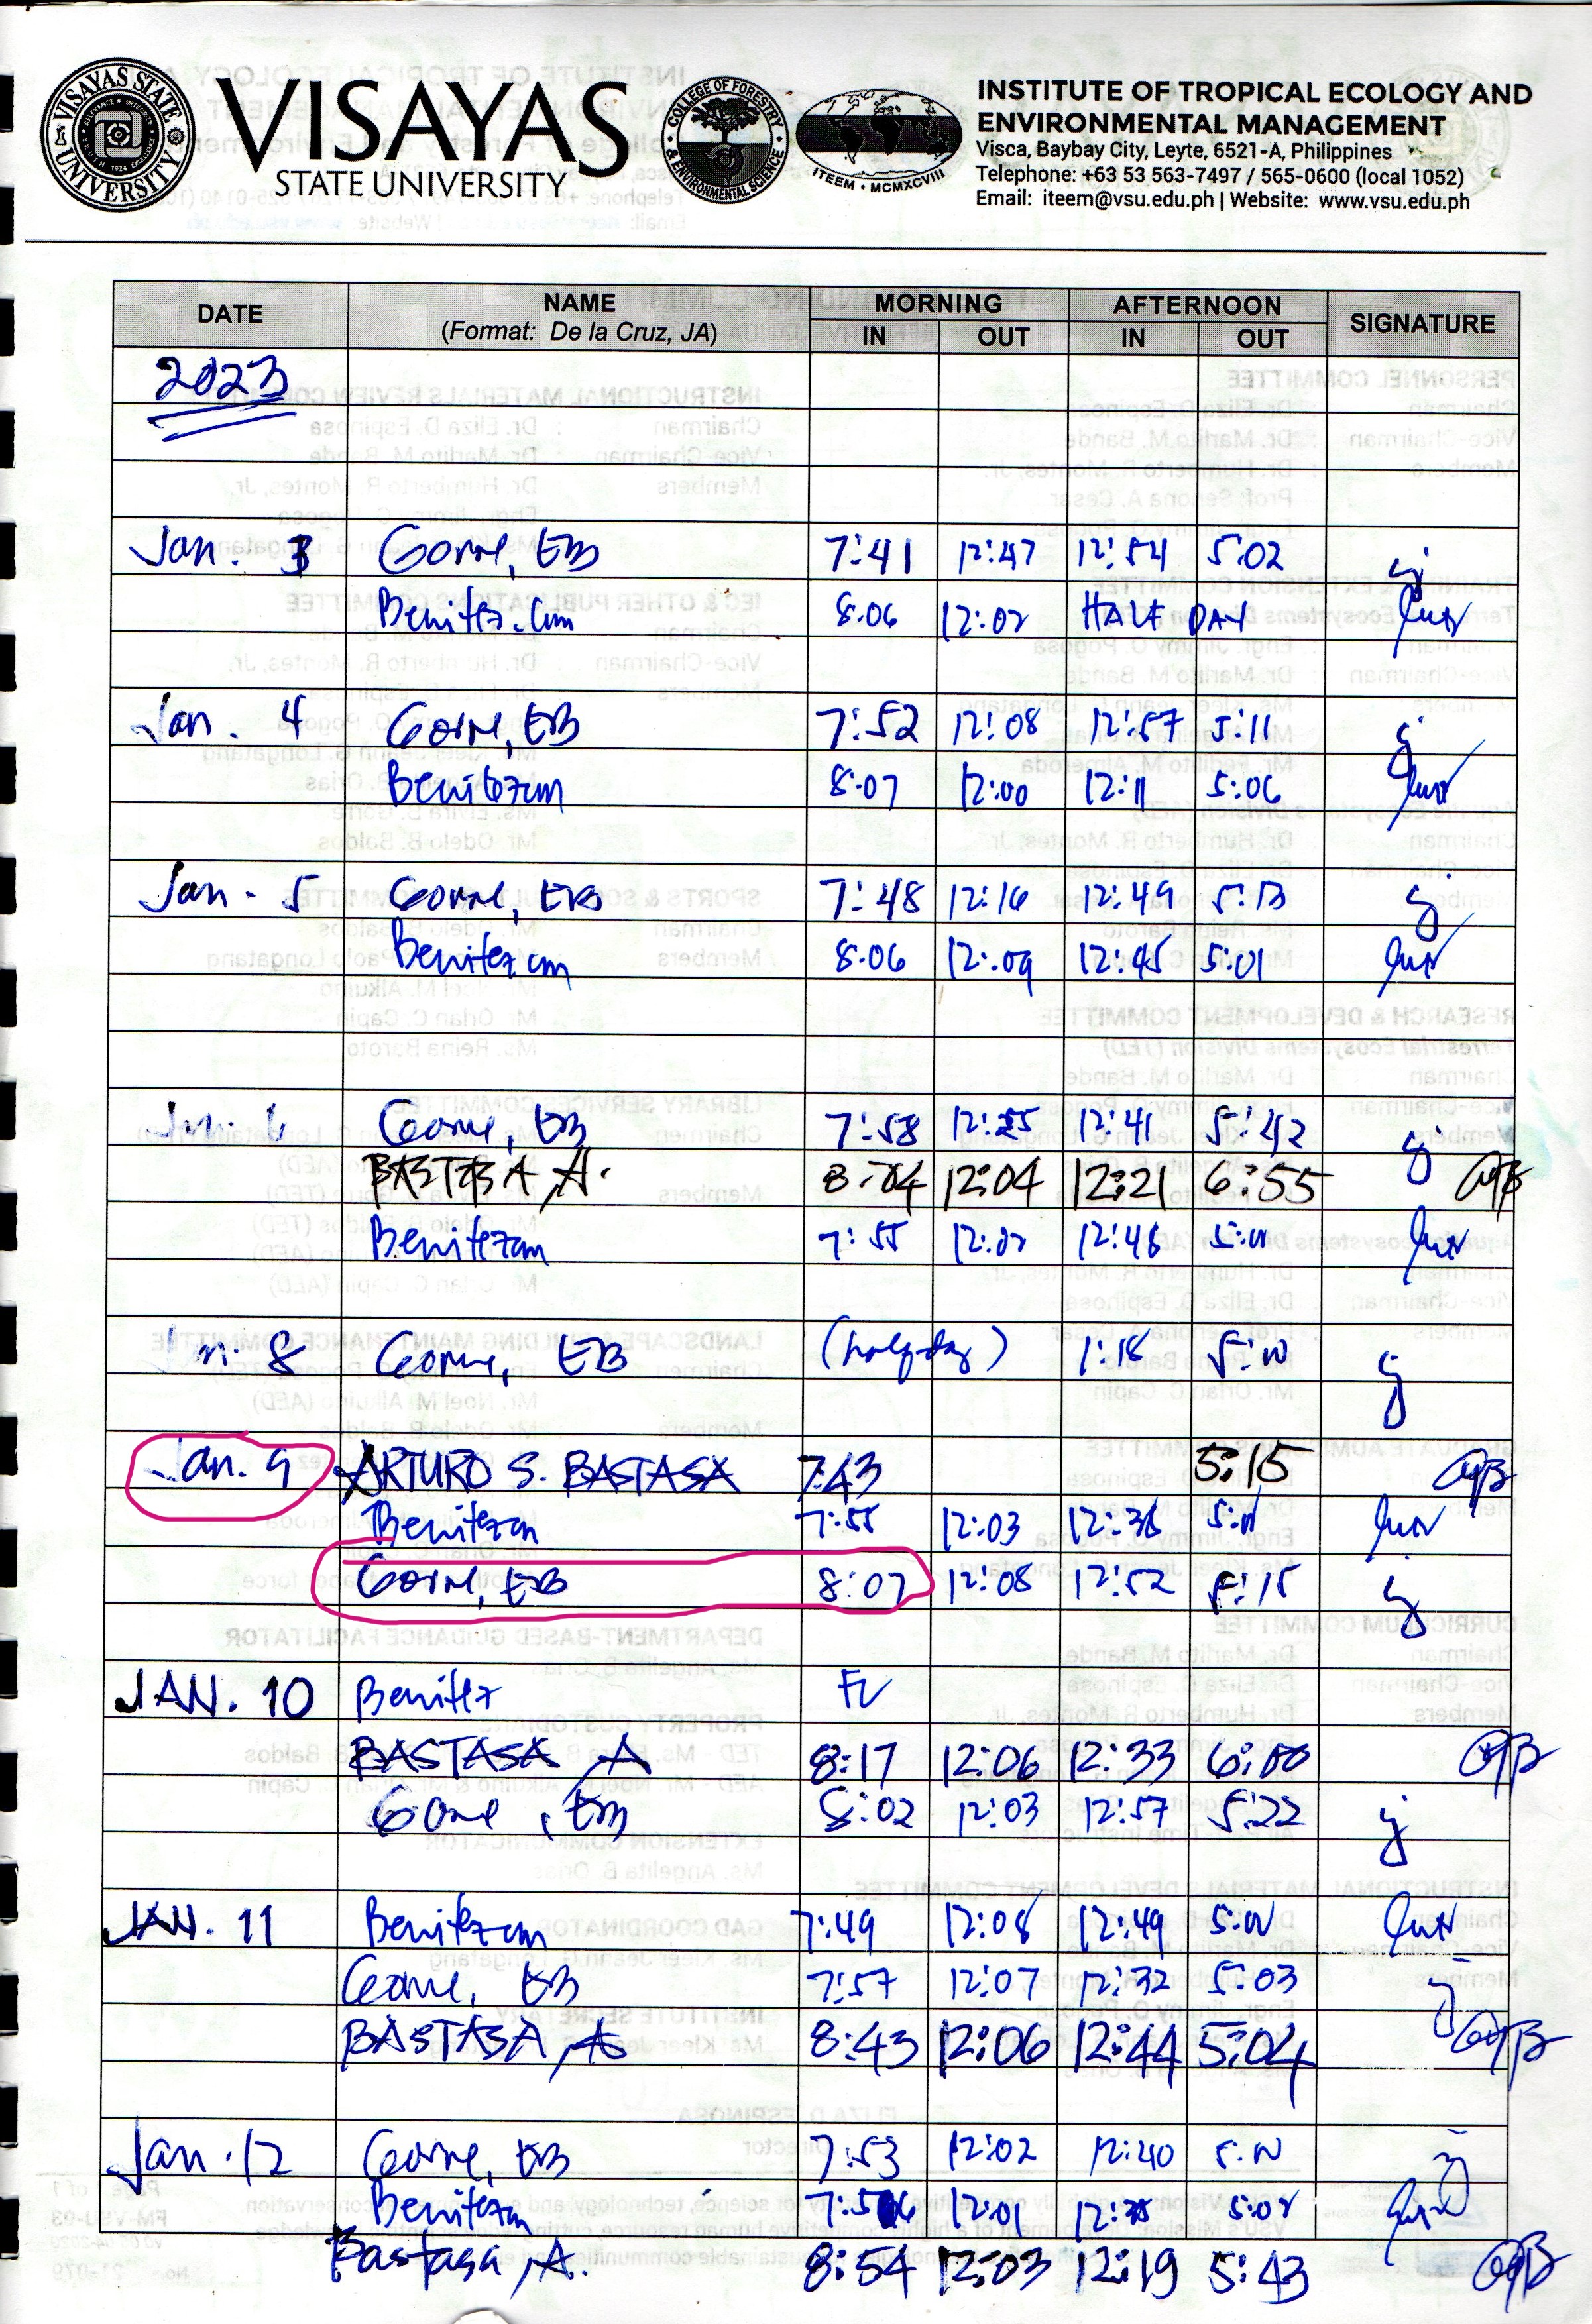 VISAYAS
STATE UNIVERSITY
VISAYAS STATE UNIVERSITY
COLLEGE OF FORESTRY & ENVIRONMENTAL SCIENCE
ITEEM • MCMXCVIII
INSTITUTE OF TROPICAL ECOLOGY AND
ENVIRONMENTAL MANAGEMENT
Visca, Baybay City, Leyte, 6521-A, Philippines
Telephone: +63 53 563-7497 / 565-0600 (local 1052)
Email: iteem@vsu.edu.ph | Website: www.vsu.edu.ph
DATE NAME MORNING AFTERNOON SIGNATURE
(Format: De la Cruz, JA) IN OUT IN OUT
2023
Jan. 3 Gorre, EB 7:41 12:47 12:54 5:02
Benitez 8:06 12:02 HALF DAY
Jan. 4 Gorre, EB 7:52 12:08 12:57 5:11
Benitez 8:07 12:00 12:11 5:06
Jan - 5 Gorre, EB 7:48 12:16 12:49 5:13
Benitez 8:06 12:09 12:45 5:01
Jan. 6 Gorre, EB 7:58 12:25 12:41 5:42
BASTASA, A. 8:04 12:04 12:21 6:55
Benitez 7:55 12:02 12:46 5:01
Jan. 8 Gorre, EB (half-day) 1:18 5:10
Jan. 9 ARTURO S. BASTASA 7:43 5:15
Benitez 7:55 12:03 12:36 5:01
Gorre, EB 8:07 12:08 12:52 5:15
JAN. 10 Benitez FL
BASTASA, A 8:17 12:06 12:33 6:00
Gorre, EB 8:02 12:03 12:57 5:22
JAN. 11 Benitez 7:49 12:08 12:49
Gorre, EB 7:57 12:07 12:32 5:03
BASTASA, A 8:43 12:06 12:44 5:04
Jan. 12 Gorre, EB 7:53 12:02 12:40
Benitez 12:01 5:02
Bastasa, A. 8:54 12:03 12:19 5:43